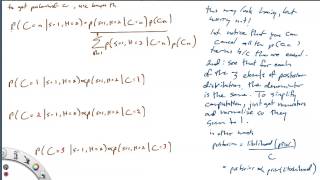 to get posterior C, we know th
P(C=n | S=1, H=2) = P(S=1, H=2 | C=n) P(C=n)
Σ P(S=1, H=2 | C=n) P(C=n)
n=1
P(C=1 | S=1, H=2) ∝ P(S=1, H=2 | C=1)
P(C=2 | S=1, H=2) ∝ P(S=1, H=2 | C=2)
P(C=3 | S=1, H=2) ∝ P(S=1, H=2 | C=3)
this may look hairy, but
worry not!
1st notice that you can
cancel all the P(C=n)
terms b/c they are equal.
2nd: see that for each
of the 3 elements of posterior
distribution, the denominator
is the same. To simplify
computation, just get numerators
and normalize so they
sum to 1.
in other words
posterior = likelihood (prior)
C
= posterior ∝ prior (likelihood)